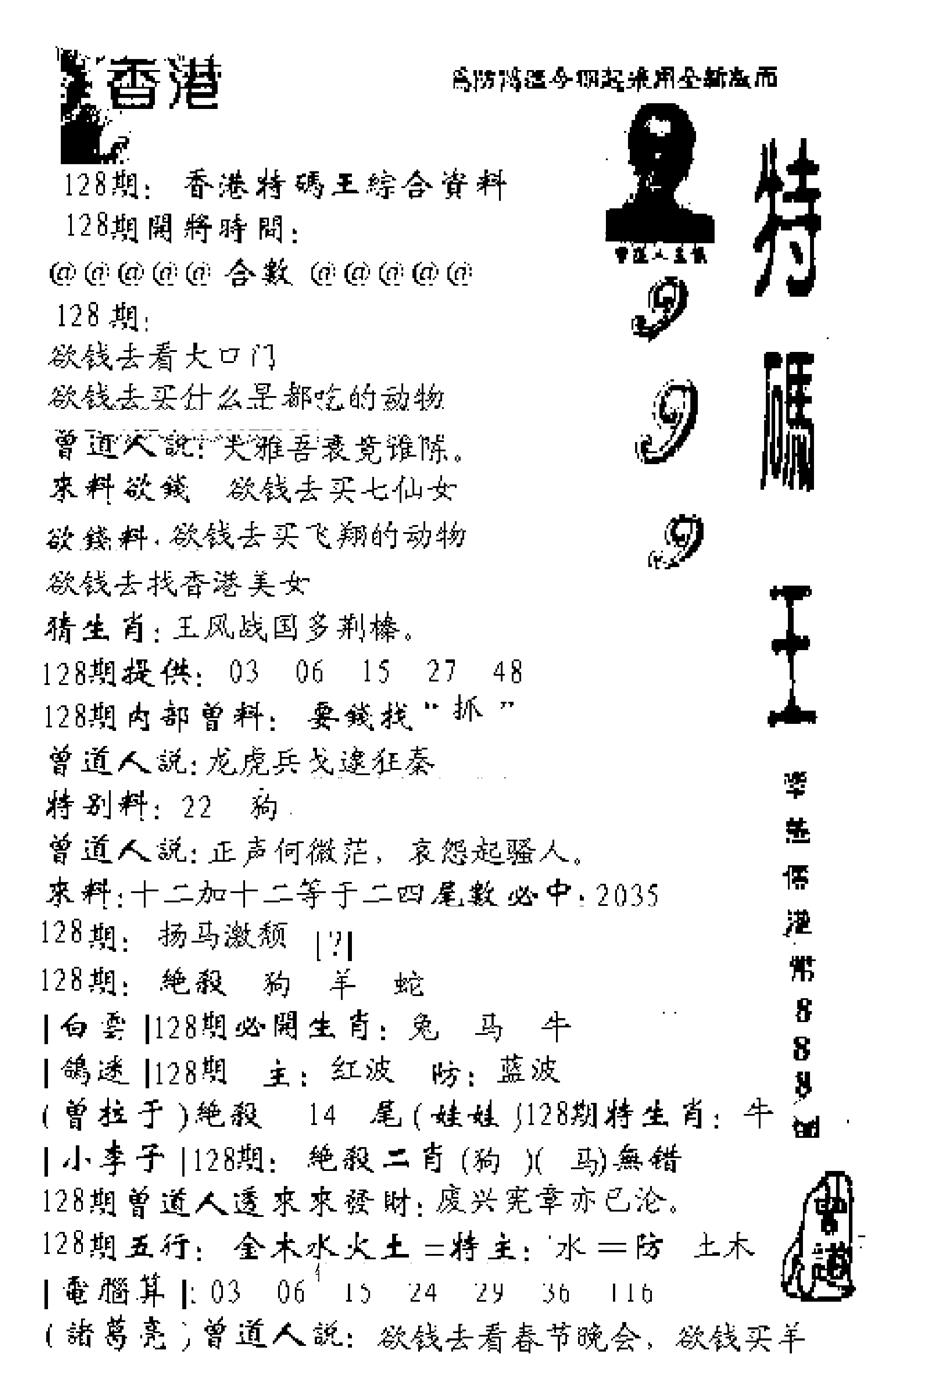 香港
為防混淆今期起采用全新版面
128期: 香港特碼王綜合資料
128期開將時間:
@@@@@ 合數 @@@@@
128期:
欲钱去看大口门
欲钱去买什么是都吃的动物
曾道人說:大雅吾衰竟谁陈。
來料欲錢 欲钱去买七仙女
欲錢料.欲钱去买飞翔的动物
欲钱去找香港美女
猜生肖:王风战国多荆榛。
128期提供: 03 06 15 27 48
128期内部曾料: 要錢找“抓”
曾道人說:龙虎兵戈逮狂秦
特别料: 22 狗.
曾道人說:正声何微茫, 哀怨起骚人。
來料:十二加十二等于二四尾數必中:2035
128期: 扬马激颓 |?|
128期: 絶殺 狗 羊 蛇
|白雲|128期必開生肖: 兔 马 牛
|鴿迷|128期 主: 红波 防: 蓝波
(曾拉于)絶殺 14 尾(娃娃)128期特生肖: 牛
|小李子|128期: 絶殺二肖(狗 )( 马)無错
128期曾道人透來來發財:废兴宪章亦已沦。
128期五行: 金木水火土=特主: 水=防 土木
|電腦算|:03 06 15 24 29 36 116
(諸葛亮)曾道人說: 欲钱去看春节晚会, 欲钱买羊
曾道人主俵
特碼王
999
港幣888
曾道